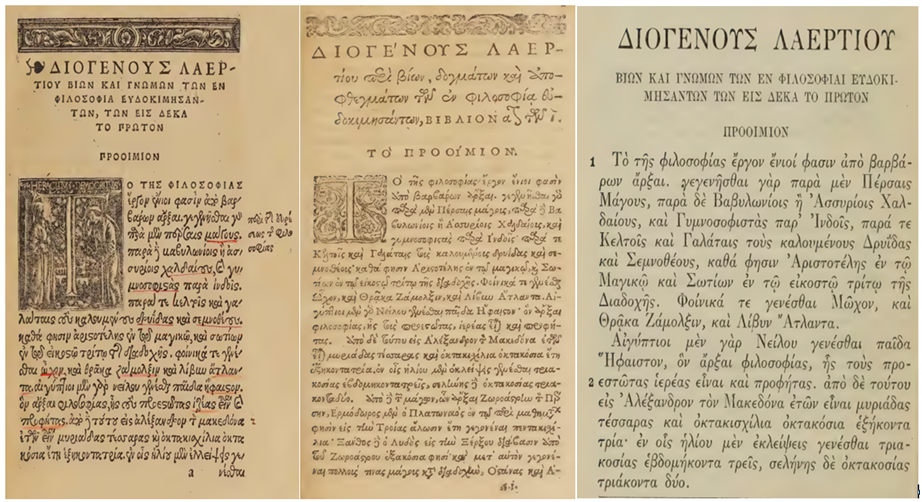 ΔΙΟΓΕΝΟΥΣ ΛΑΕΡ-
ΤΙΟΥ ΒΙΩΝ ΚΑΙ ΓΝΩΜΩΝ ΤΩΝ ΕΝ
ΦΙΛΟΣΟΦΙΑ ΕΥΔΟΚΙΜΗΣΑΝ-
ΤΩΝ, ΤΩΝ ΕΙΣ ΔΕΚΑ
ΤΟ ΠΡΩΤΟΝ
ΠΡΟΟΙΜΙΟΝ
Ο ΤΗΣ ΦΙΛΟΣΟΦΙΑΣ
ἔργον ἔνιοι φασὶν ἀπὸ βαρ-
βάρων ἄρξαι. γεγενῆσθαι γὸ
παρὰ μὲν πέρσαις μάγους,
παρὰ ἢ βαβυλωνίοις ἢ ἀσ-
συρίοις χαλδαίους, καὶ γυ-
μνοσοφιστὰς παρ' ἰνδοῖς.
παρά τε κελτοῖς καὶ γα-
λάταις τοὺς καλουμένους δρυίδας καὶ σεμνοθέους.
καθά φησιν ἀριστοτέλης ἐν τῷ μαγικῷ, καὶ σωτίων
ἐν τῷ εἰκοστῷ τρίτῳ τῆς διαδοχῆς. φοίνικά τε γενέ-
σθαι ὦχον, καὶ θρᾷκα ζάμολξιν καὶ λίβυν ἄτλαν-
τα. αἰγύπτιοι μὲν γὰρ νείλου γενέσθαι παῖδα ἥφαιστον,
ὃν ἄρξαι φιλοσοφίας, ἧς τοὺς προεστῶτας ἱερέας εἶναι καὶ
προφήτας. ἀπὸ δὲ τούτου εἰς ἀλέξανδρον τ μακεδόνα
ἐτῶν εἶναι μυριάδας τέσσαρας καὶ ὀκτακισχίλια ὀκτα-
κόσια ἔτη ἑξηκοντατρία. ἐν οἷς ἡλίου μὲν ἐκλείψεις γε
a νέσθαι
ΔΙΟΓΕ'ΝΟΥΣ ΛΑΕΡ-
τίου περὶ βίων, δογμάτων καὶ ἀπο-
φθεγμάτων τῶν ἐν φιλοσοφίᾳ εὐ-
δοκιμησάντων, ΒΙΒΛΙΟΝ α τῶν ι.
ΤΟ ΠΡΟΟΙ'ΜΙΟΝ.
Ο τῆς φιλοσοφίας ἔργον ἔνιοι φασὶν
ἀπὸ βαρβάρων ἄρξαι. γεγενῆσθαι γὸ
παρὰ μὲν Πέρσαις μάγους, παρὰ ἢ Βα
βυλωνίοις ἢ Ἀσσυρίοις Χαλδαίους, καὶ
γυμνοσοφιστὰς παρὰ Ἰνδοῖς· παρά τε
Κελτοῖς καὶ Γαλάταις τοὺς καλουμένους δρυίδας καὶ σε-
μνοθέους· καθά φησιν Ἀριστοτέλης ἐν τῷ μαγικῷ, καὶ Σω-
τίων ἐν τῷ εἰκοστῷ τρίτῳ τῆς διαδοχῆς. Φοίνικά τε γενέσθαι
Ὦχον, καὶ Θρᾷκα Ζάμολξιν, καὶ Λίβυν Ἄτλαντα. Αἰ-
γύπτιοι μὲν γὸ Νείλου γενέσθαι παῖδα Ἥφαιστον· ὃν ἄρξαι
φιλοσοφίας, ἧς τοὺς προεστῶτας, ἱερέας εἶναι καὶ προφή-
τας. Ἀπὸ δὲ τούτου εἰς Ἀλέξανδρον τ Μακεδόνα ἐτῶν
εἶναι μυριάδας τέσσαρας, καὶ ὀκτακισχίλια ὀκτακόσια ἔτη
ἑξηκοντατρία. ἐν οἷς ἡλίου μὲν ἐκλείψεις γενέσθαι τρια-
κοσίας ἑβδομηκοντατρεῖς, σελήνης ἢ ὀκτακοσίας τριακον-
ταδύο. Ἀπὸ ἢ τ μάγων, ὧν ἄρξαι Ζωροάστρην τ Πέρ
σην, Ἑρμόδωρος μὲν ὁ Πλατωνικὸς ἐν τῷ περὶ μαθημάτων
φησιν εἰς τὴν Τροίας ἅλωσιν ἔτη γεγονέναι πεντακισχί-
λια· Ξάνθος ἢ ὁ Λυδὸς εἰς τὴν Ξέρξου διάβασιν ἀπὸ
τοῦ Ζωροάστρου ἑξακόσια φησί· καὶ μετ' αὐτὸν γεγονέ-
ναι πολλούς τινας μάγους κατὰ διαδοχὴν, Ὀστάνας καὶ Ἀ-
ΔΙΟΓΕΝΟΥΣ ΛΑΕΡΤΙΟΥ
ΒΙΩΝ ΚΑΙ ΓΝΩΜΩΝ ΤΩΝ ΕΝ ΦΙΛΟΣΟΦΙΑΙ ΕΥΔΟΚΙ-
ΜΗΣΑΝΤΩΝ ΤΩΝ ΕΙΣ ΔΕΚΑ ΤΟ ΠΡΩΤΟΝ
ΠΡΟΟΙΜΙΟΝ
1 Τὸ τῆς φιλοσοφίας ἔργον ἔνιοί φασιν ἀπὸ βαρβά-
ρων ἄρξαι. γεγενῆσθαι γὰρ παρὰ μὲν Πέρσαις
Μάγους, παρὰ δὲ Βαβυλωνίοις ἢ Ἀσσυρίοις Χαλ-
δαίους, καὶ Γυμνοσοφιστὰς παρ' Ἰνδοῖς, παρά τε
Κελτοῖς καὶ Γαλάταις τοὺς καλουμένους Δρυΐδας
καὶ Σεμνοθέους, καθά φησιν Ἀριστοτέλης ἐν τῷ
Μαγικῷ καὶ Σωτίων ἐν τῷ εἰκοστῷ τρίτῳ τῆς
Διαδοχῆς. Φοίνικά τε γενέσθαι Μῶχον, καὶ
Θρᾷκα Ζάμολξιν, καὶ Λίβυν Ἄτλαντα.
Αἰγύπτιοι μὲν γὰρ Νείλου γενέσθαι παῖδα
Ἥφαιστον, ὃν ἄρξαι φιλοσοφίας, ἧς τοὺς προ-
2 εστῶτας ἱερέας εἶναι καὶ προφήτας. ἀπὸ δὲ τούτου
εἰς Ἀλέξανδρον τὸν Μακεδόνα ἐτῶν εἶναι μυριάδας
τέσσαρας καὶ ὀκτακισχίλια ὀκτακόσια ἑξήκοντα
τρία· ἐν οἷς ἡλίου μὲν ἐκλείψεις γενέσθαι τρια-
κοσίας ἑβδομήκοντα τρεῖς, σελήνης δὲ ὀκτακοσίας
τριάκοντα δύο.